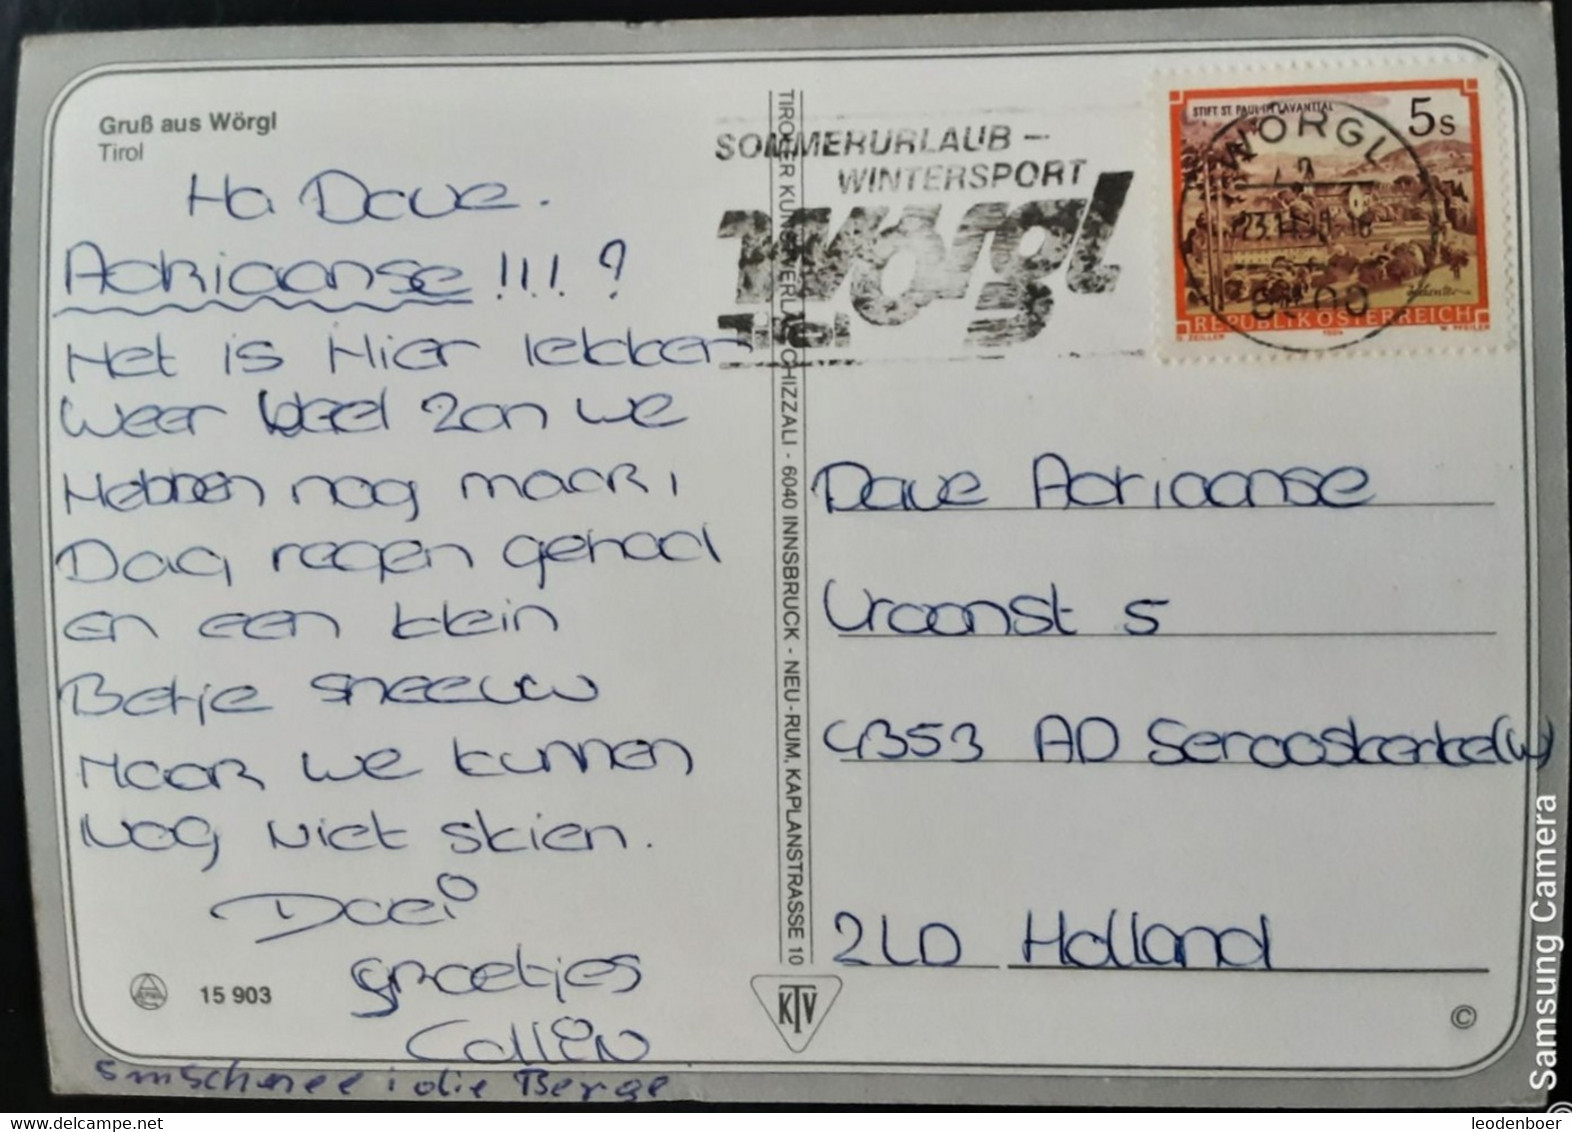 Gruß aus Wörgl
Tirol
Ha Dave.
Adriaanse !!!! ?
Het is Hier lekker
weer veel zon we
Hebben nog maar 1
Dag regen gehad
en een klein
Betje sneeuw
Maar we kunnen
Nog niet skien.
Doei
groetjes
Collin
5m Schnee i die Berge
15 903
TIROLER KUNSTVERLAG CHIZZALI - 6040 INNSBRUCK - NEU-RUM, KAPLANSTRASSE 10
KTV
SOMMERURLAUB –
WINTERSPORT
wörgl
Tirol
STIFT ST. PAUL IM LAVANTTAL
5s
WÖRGL
REPUBLIK ÖSTERREICH
O. ZEILER 1984 W. PFEILER
Dave Adriaanse
Vroonst 5
4353 AD Serooskerke (W)
ZLD Holland
©
Samsung Camera
leodenboer